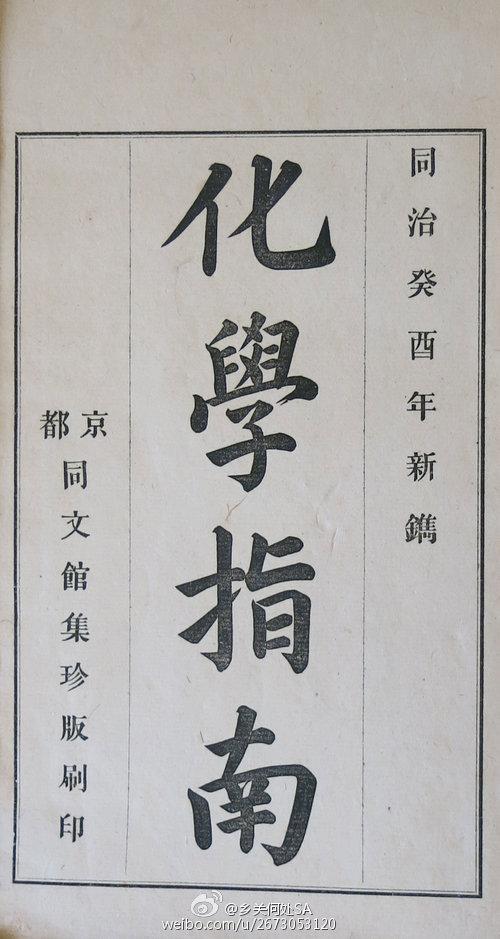 同治癸酉年新鐫
化學指南
京都
同文館集珍版刷印
@乡关何处SA
weibo.com/u/2673053120